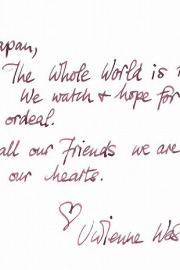 apan,
The Whole World is
We watch & hope for
ordeal.
all our Friends we are
our hearts.
Vivienne Wes